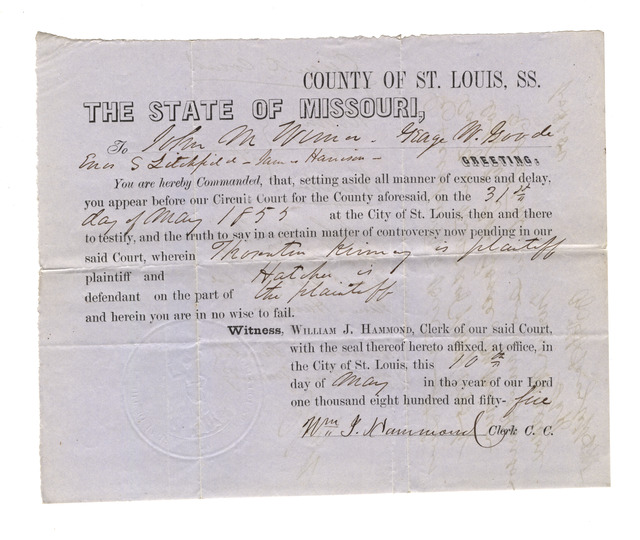 COUNTY OF ST. LOUIS, SS.
THE STATE OF MISSOURI,
To John M Wimer - George W. Goode
Enos S Litchfield - - Harrison - GREETING:
You are hereby Commanded, that, setting aside all manner of excuse and delay,
you appear before our Circuit Court for the County aforesaid, on the 31st
day of May 1855 at the City of St. Louis, then and there
to testify, and the truth to say in a certain matter of controversy now pending in our
said Court, wherein Thornton Kinney is plaintiff
plaintiff and Hatcher is
defendant on the part of the plaintiff
and herein you are in no wise to fail.
Witness, WILLIAM J. HAMMOND, Clerk of our said Court,
with the seal thereof hereto affixed, at office, in
the City of St. Louis, this 10th
day of May in the year of our Lord
one thousand eight hundred and fifty- five
Wm J. Hammond Clerk C. C.